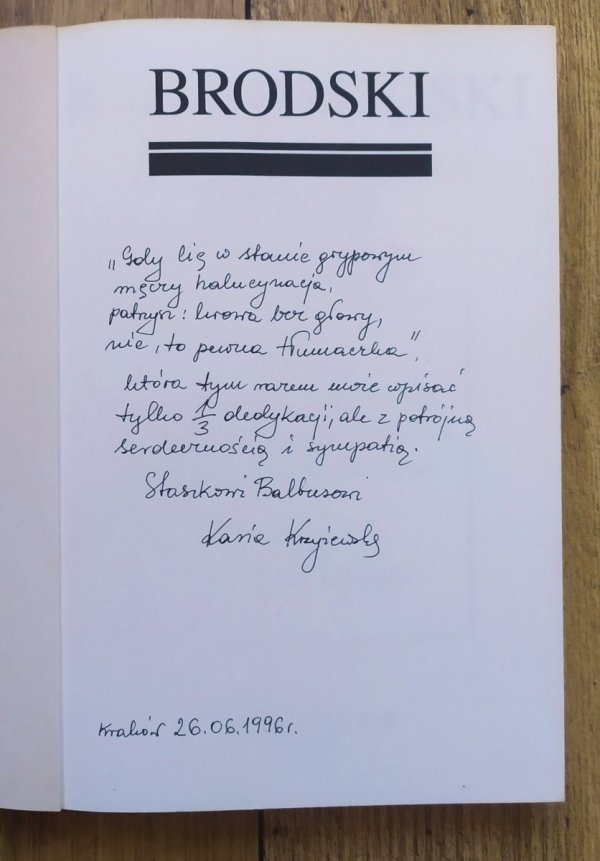 BRODSKI
„Gdy cię w stanie grypowym
męczy halucynacja,
patrzysz: krowa bez głowy,
nie, to pewna tłumaczka”,
która tym razem może wpisać
tylko 1/3 dedykacji, ale z potrójną
serdecznością i sympatią.
Staszkowi Balbusowi
Kasia Krzyżewska
Kraków 26.06.1996r.